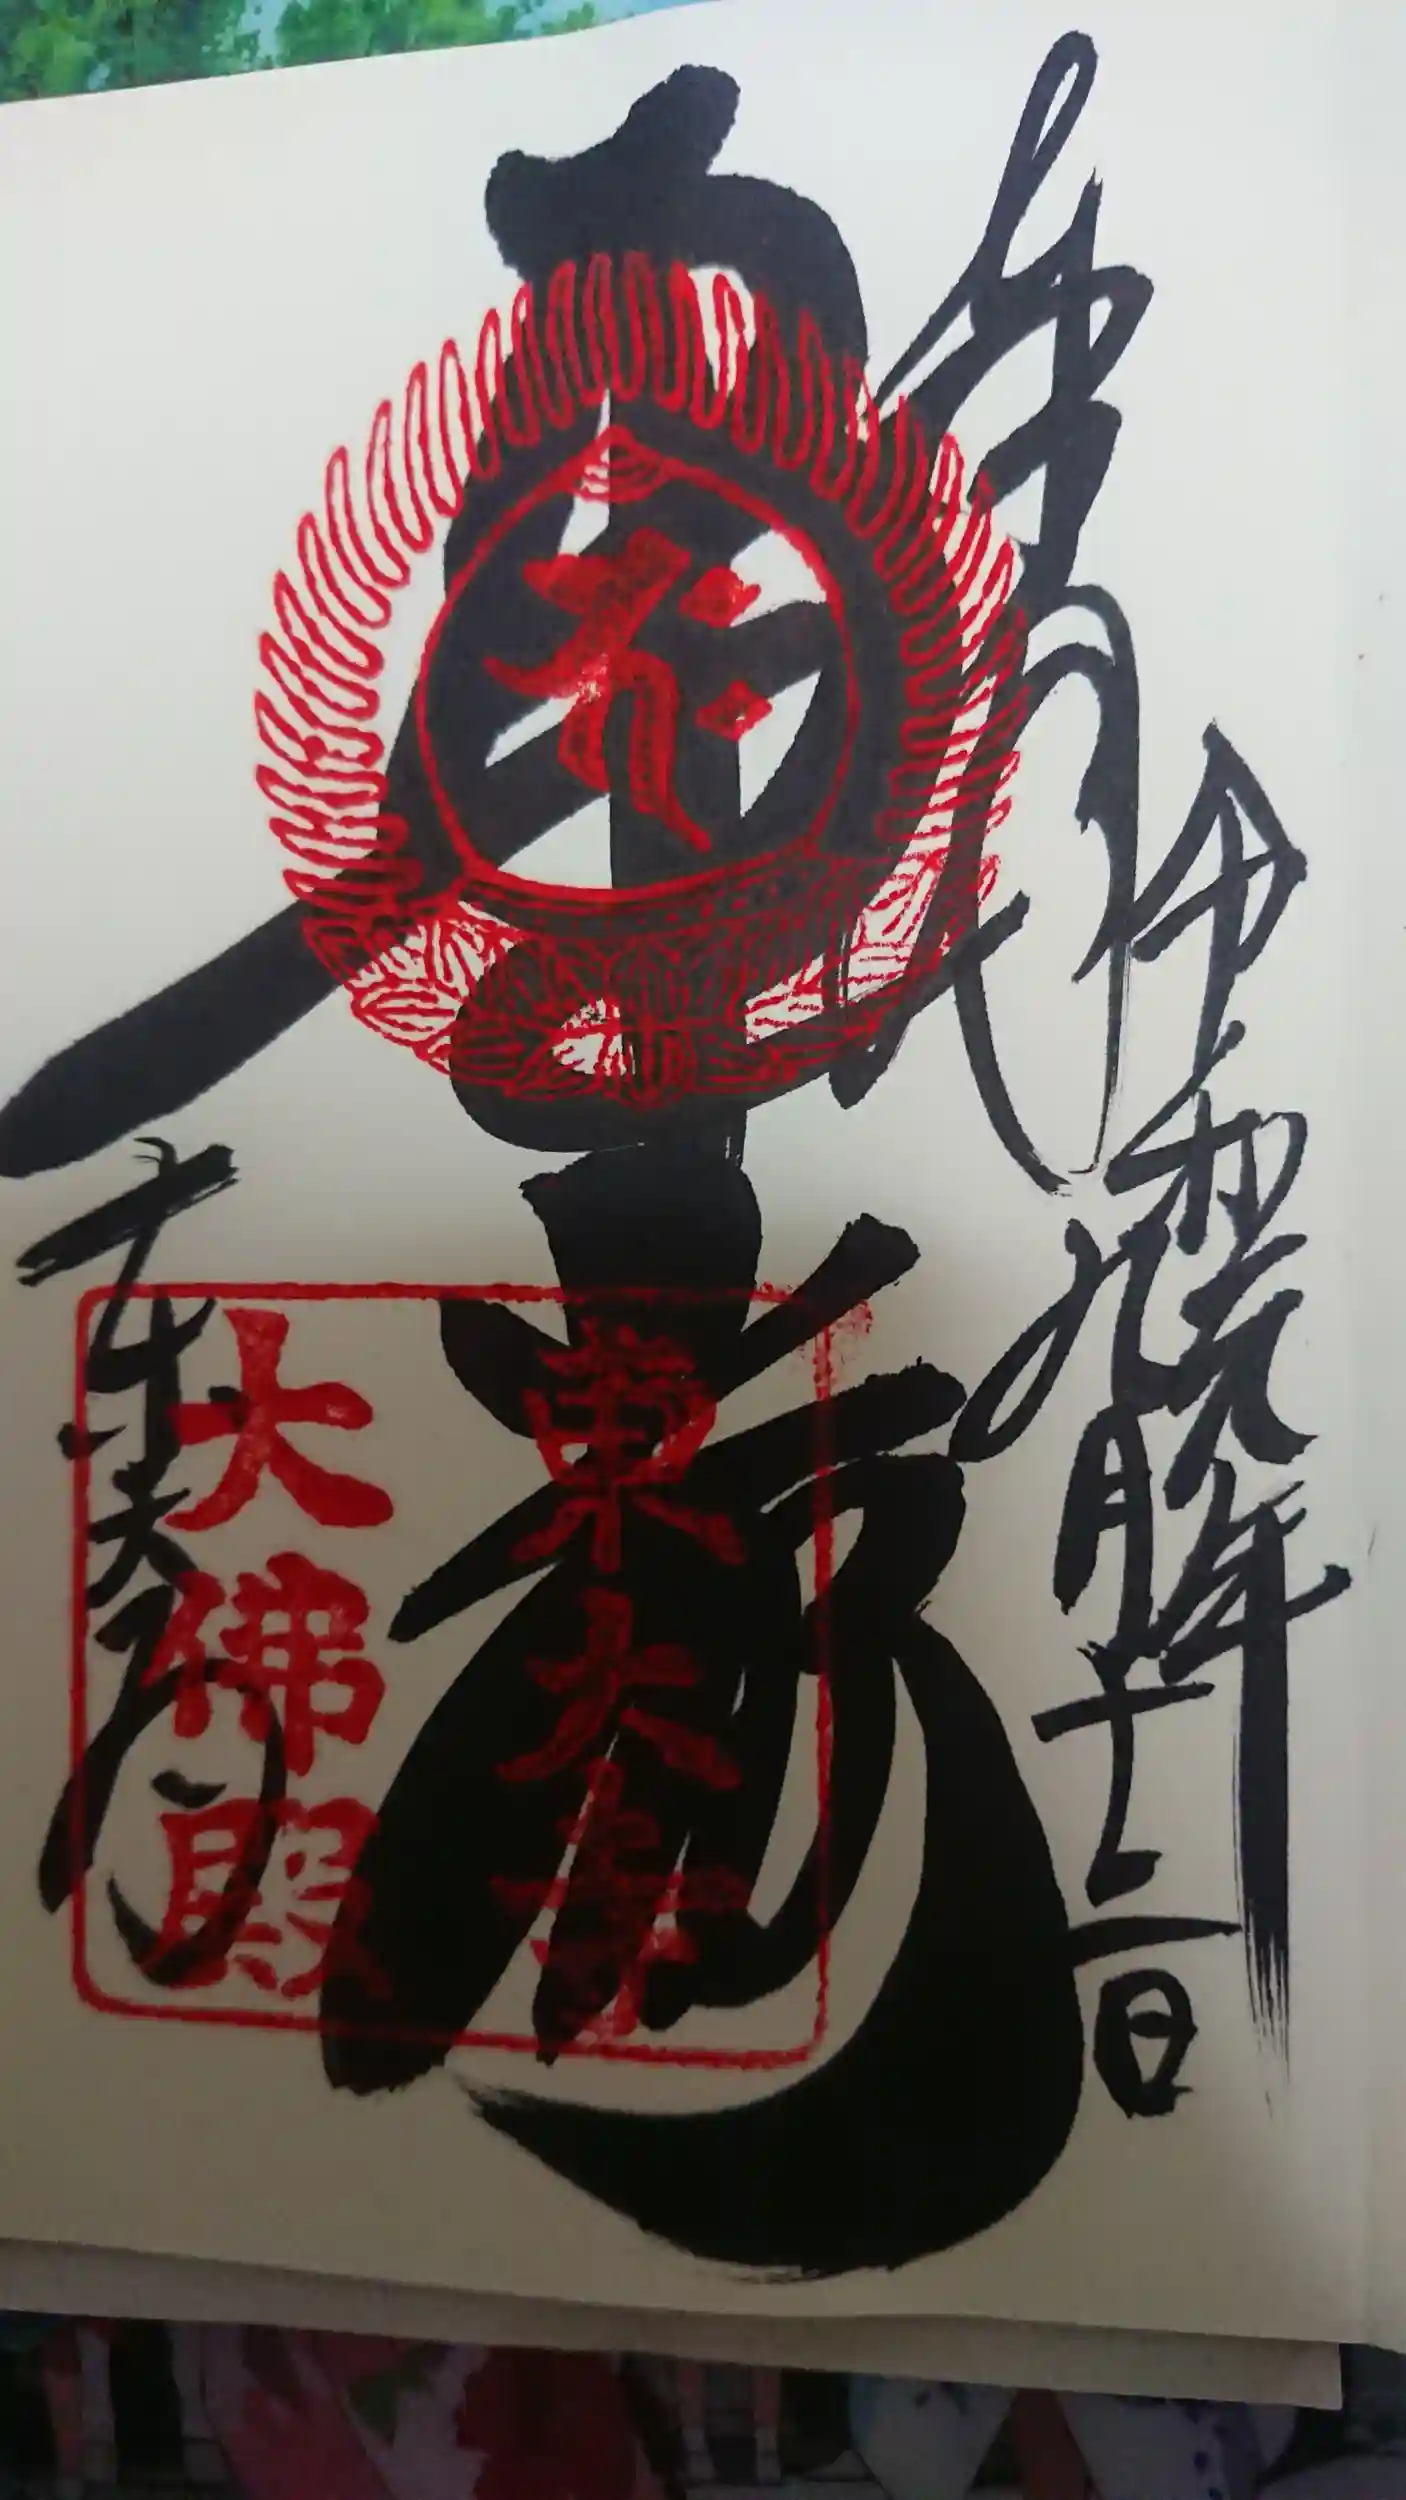 奉拝
令和元年
九月十二日
華厳
東大寺
東大寺
大佛殿